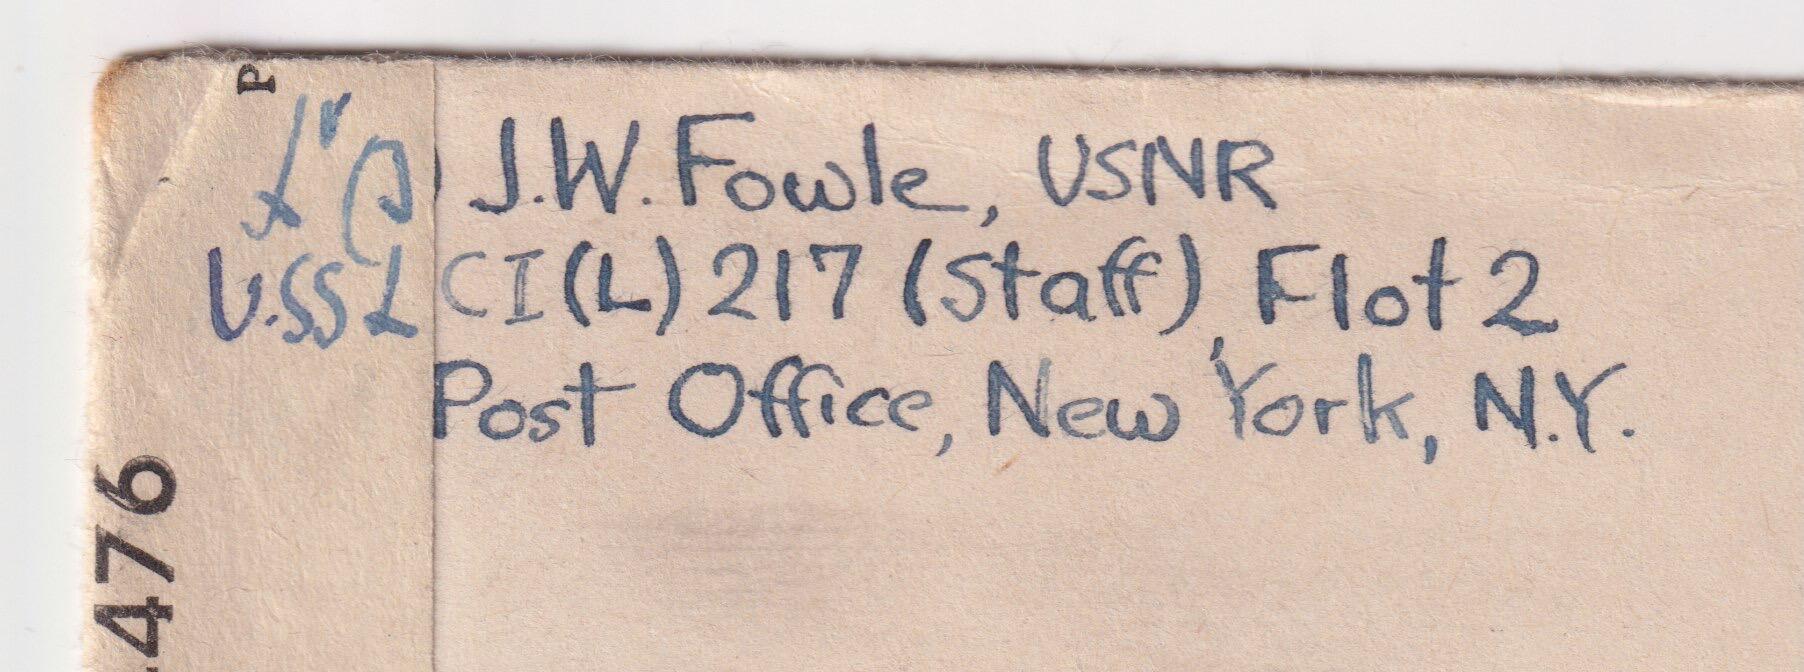 P
Lt (J J.W. Fowle, USNR
USS LCI(L) 217 (Staff), Flot 2
Post Office, New York, N.Y.
476